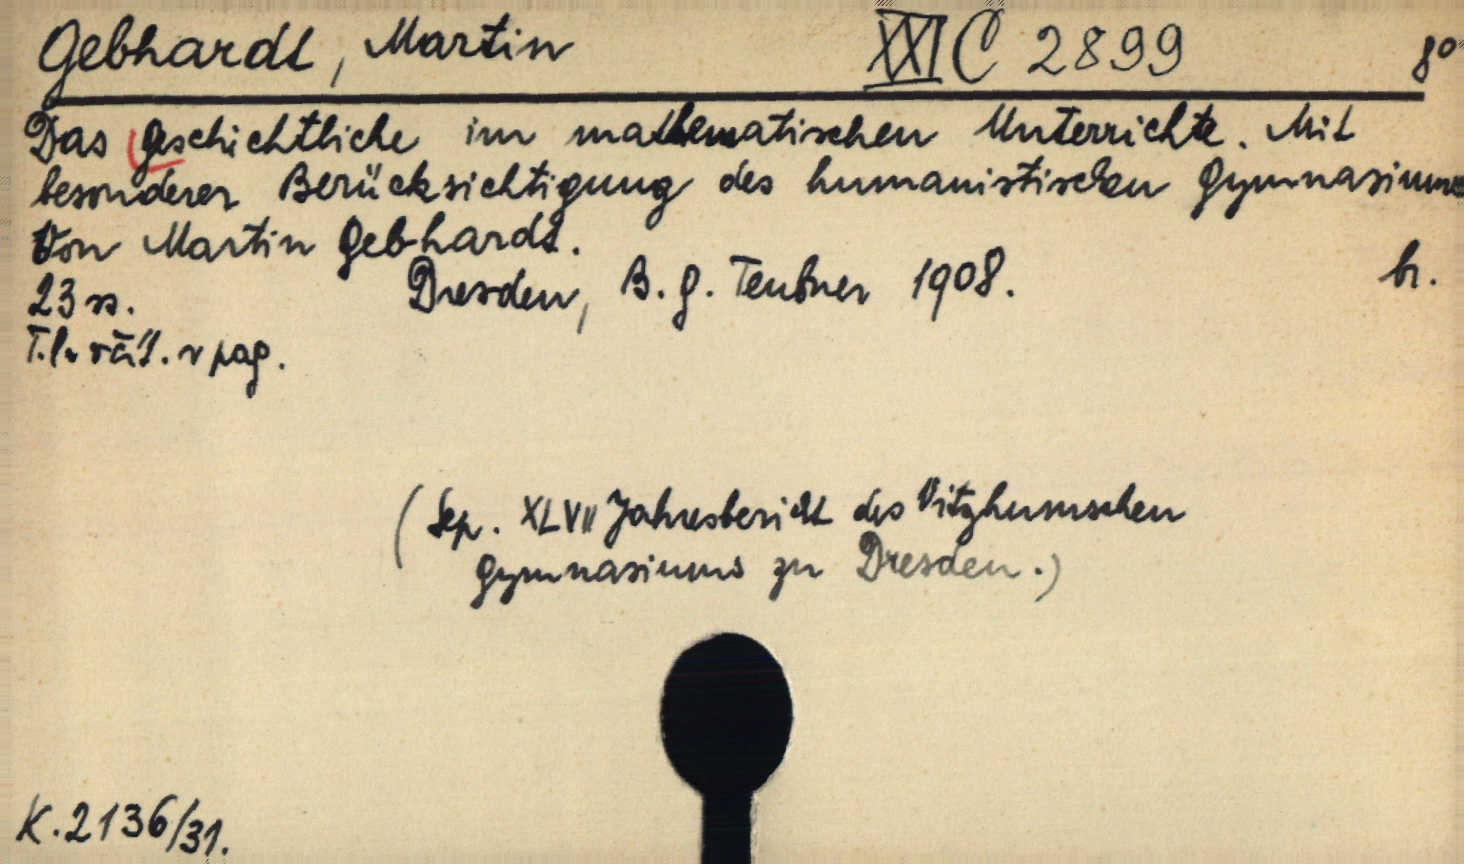 Gebhardt, Martin XXI C 2899 8°
Das Geschichtliche im mathematischen Unterrichte. Mit
besonderer Berücksichtigung des humanistischen Gymnasiums
Von Martin Gebhardt.
23 ss. Dresden, B. G. Teubner 1908. br.
T.l. včít. v pag.
(Sep. XLVII Jahresbericht des Vitzhumschen
Gymnasiums zu Dresden.)
K. 2136/31.